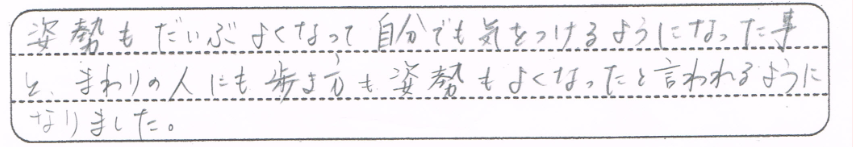 姿勢もだいぶよくなって自分でも気をつけるようになった事
と、まわりの人にも歩き方も姿勢もよくなったと言われるように
なりました。